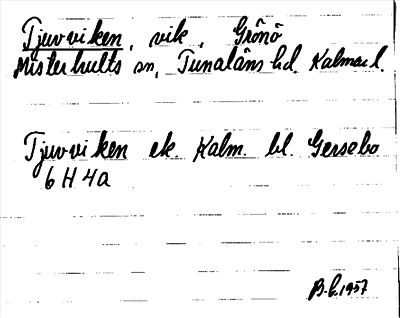 Tjuvviken, vik, Grönö
Misterhults sn, Tunaläns hd. Kalmar l.
Tjuvviken ek. Kalm. bl. Gersebo
6 H 4a
B.L. 1957